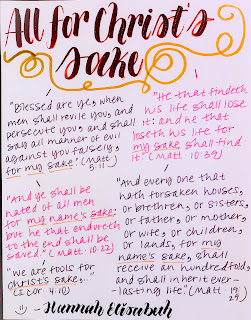 All for Christ's
sake
"Blessed are ye, when
men shall revile you, and
persecute you, and shall
say all manner of evil
against you falsely,
for my sake." (Matt.
5:11
"He that findeth
his life shall lose
it: and he that
loseth his life for
my sake shall find
it." (Matt. 10:39)
"And ye shall be
hated of all men
for my name's sake:
but he that endureth
to the end shall be
saved." (Matt. 10:22)
"And every one that
hath forsaken houses,
or brethren, or sisters,
or father, or mother,
or wife, or children,
or lands, for my
name's sake, shall
receive an hundredfold,
and shall inherit ever-
-lasting life." (Matt. 19:
29)
"We are fools for
Christ's sake..."
(1 Cor 4:10)
- Hannah Elisabeth